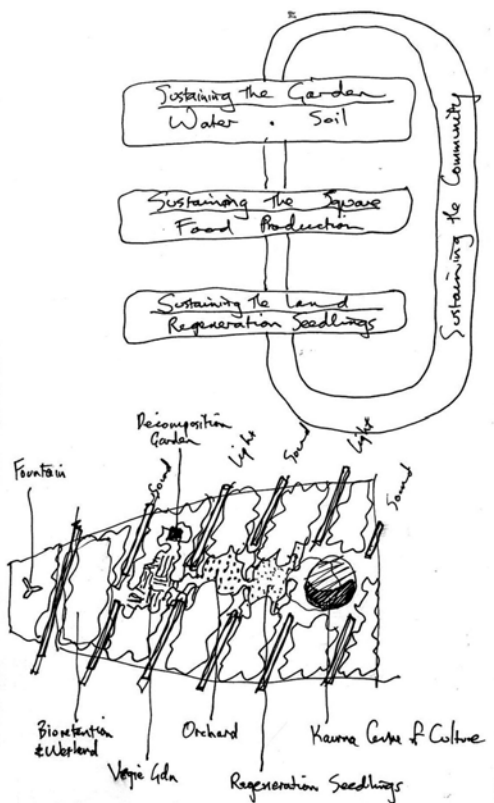 Sustaining The Garden
Water . Soil
Sustaining The Square
Food Production
Sustaining The Land
Regeneration Seedlings
Sustaining the Community
Decomposition
Garden
Fountain
Sound
Light
Sound
Light
Sound
Bioretention
& Wetland
Vegie Gdn
Orchard
Regeneration Seedlings
Kaurna Centre of Culture